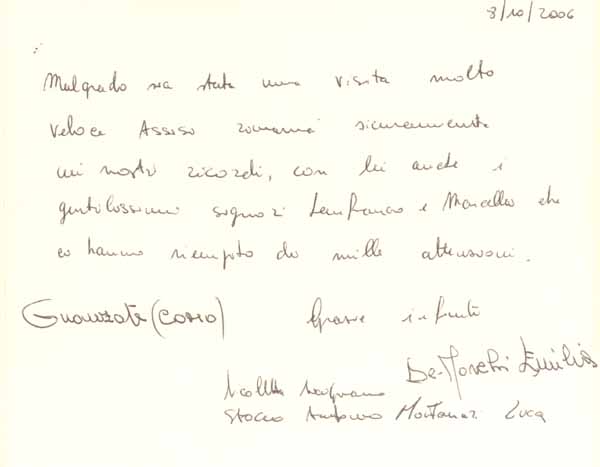 8/10/2006
Malgrado sia stata una visita molto
veloce Assisi rimarrà sicuramente
nei nostri ricordi, con lei anche i
gentilissimi signori Lanfranco e Marcello che
ci hanno riempito di mille attenzioni.
Guanzate (Como) Grazie infinite
De Marchi Emilio
Nicoletta
Stocco Antonio Montanari Luca